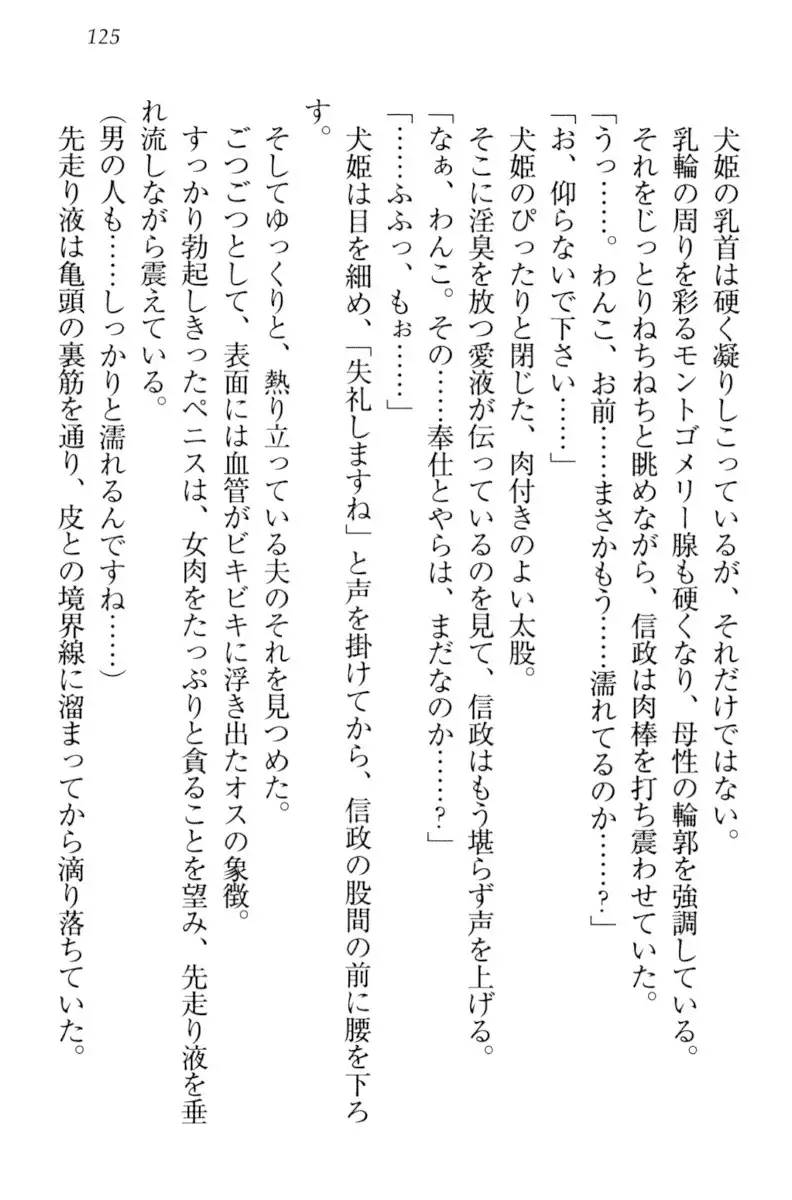 125
犬姫の乳首は硬く凝りしこっているが、それだけではない。
乳輪の周りを彩るモントゴメリー腺も硬くなり、母性の輪郭を強調している。
それをじっとりねちねちと眺めながら、信政は肉棒を打ち震わせていた。
「うっ……。わんこ、お前……まさかもう……濡れてるのか……？」
「お、仰らないで下さい……」
犬姫のぴったりと閉じた、肉付きのよい太股。
そこに淫臭を放つ愛液が伝っているのを見て、信政はもう堪らず声を上げる。
「なぁ、わんこ。その……奉仕とやらは、まだなのか……？」
「……ふふっ、もぉ……」
犬姫は目を細め、「失礼しますね」と声を掛けてから、信政の股間の前に腰を下ろ
す。
そしてゆっくりと、熱り立っている夫のそれを見つめた。
ごつごつとして、表面には血管がビキビキに浮き出たオスの象徴。
すっかり勃起しきったペニスは、女肉をたっぷりと貪ることを望み、先走り液を垂
れ流しながら震えている。
（男の人も……しっかりと濡れるんですね……）
先走り液は亀頭の裏筋を通り、皮との境界線に溜まってから滴り落ちていた。